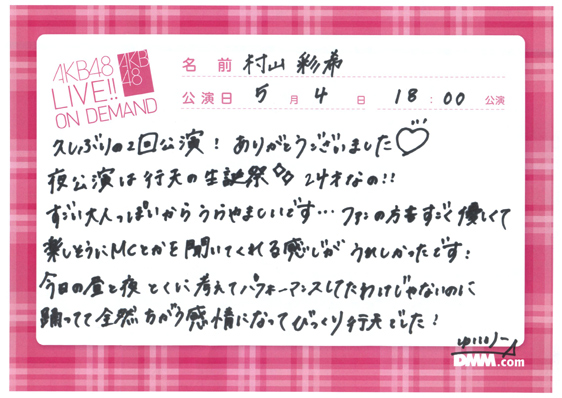 AKB48
LIVE!!
ON DEMAND
AKB
48
名前 村山 彩希
公演日 5月 4日 18:00公演
久しぶりの2回公演! ありがとうございました♡
夜公演は行天の生誕祭 24才なの!!
すごい大人っぽいからうらやましいです… ファンの方もすごく優しくて
楽しそうにMCとかを聞いてくれる感じがうれしかったです!
今日の昼と夜とくに考えてパフォーマンスしてたわけじゃないのに
踊ってて全然ちがう感情になってびっくり行天でした!
DMM.com